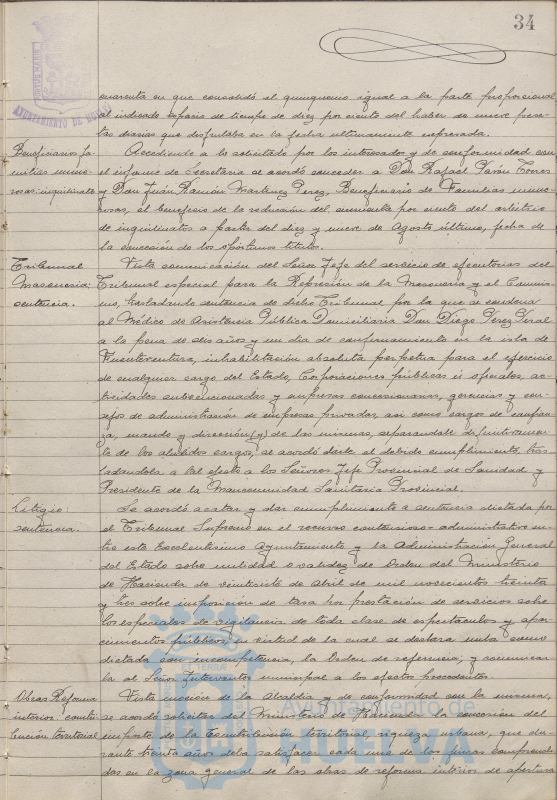 34
AYUNTAMIENTO DE HUELVA
cuarenta en que consolidó el quinquenio igual a la parte proporcional
al indicado espacio de tiempo de diez por ciento del haber de nueve pese-
tas diarias que disfrutaba en la fecha ultimamente expresada.
Beneficiarios fa-
milias nume-
rosas: inquilinato
Accediendo a lo solicitado por los interesados y de conformidad con
el informe de Secretaría se acordó conceder a Don Rafael Pavón Torres
y Don Juan Ramón Martinez Perez, Beneficiario de Familias nume-
rosas, el beneficio de la reducción del cincuenta por ciento del arbitrio
de inquilinatos a partir del diez y nueve de Agosto último, fecha de
la concesión de los oportunos titulos.
Tribunal
Masoneria:
sentencia.
Vista comunicación del Señor Jefe del servicio de ejecutorias del
Tribunal especial para la Represión de la Masoneria y el Comunis-
mo, trasladando sentencia de dicho Tribunal por la que se condena
al Médico de Asistencia Pública Domiciliaria Don Diego Perez
a la pena de seis años y un dia de confinamiento en la isla de
Fuerteventura, inhabilitación absoluta perpetua para el ejercicio
de cualquier cargo del Estado, Corporaciones públicas u oficiales, en-
tidades subvencionadas y empresas concesionarias, gerencias y con-
sejos de administración de empresas privadas, asi como cargos de confian-
za, mando y dirección (y) de las mismas, separandole definitivamen-
te de los aludidos cargos, se acordó darle el debido cumplimiento, tras
ladandola a tal efecto a los Señores Jefe Provincial de Sanidad y
Presidente de la Mancomunidad Sanitaria Provincial.
Litigio:
sentencia.
Se acordó acatar y dar cumplimiento a sentencia dictada por
el Tribunal Supremo en el recurso contencioso-administrativo en-
tre este Excelentísimo Ayuntamiento y la Administración General
del Estado sobre nulidad o validez de Orden del Ministerio
de Hacienda de veintisiete de Abril de mil novecientos treinta
y tres sobre imposición de tasa por prestación de servicios sobre
los especiales de vigilancia de toda clase de espectáculos y espar-
cimientos públicos en virtud de la cual se declara nula como
dictada con incompetencia, la Orden de referencia, y comunicar-
la al Señor Interventor municipal a los efectos procedentes.
Obras Reforma
interior: contri-
bución territorial
Vista moción de la Alcaldia y de conformidad con la misma,
se acordó solicitar del Ministerio de Hacienda la concesión del
importe de la Contribución territorial, riqueza urbana, que du-
rante treinta años deba satisfacer cada una de las fincas comprendi-
das en la zona general de las obras de reforma interior de apertura
Ayuntamiento de
HUELVA